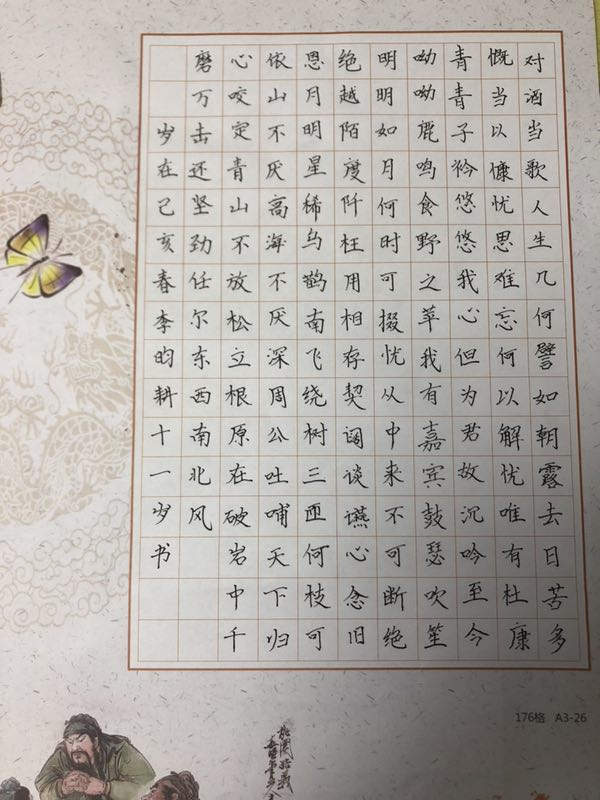 对酒当歌人生几何譬如朝露去日苦多
慨当以慷忧思难忘何以解忧唯有杜康
青青子衿悠悠我心但为君故沉吟至今
呦呦鹿鸣食野之苹我有嘉宾鼓瑟吹笙
明明如月何时可掇忧从中来不可断绝
绝越陌度阡枉用相存契阔谈讌心念旧
恩月明星稀乌鹊南飞绕树三匝何枝可
依山不厌高海不厌深周公吐哺天下归
心咬定青山不放松立根原在破岩中千
磨万击还坚劲任尔东西南北风
岁在己亥春李昀耕十一岁书
176格 A3-26